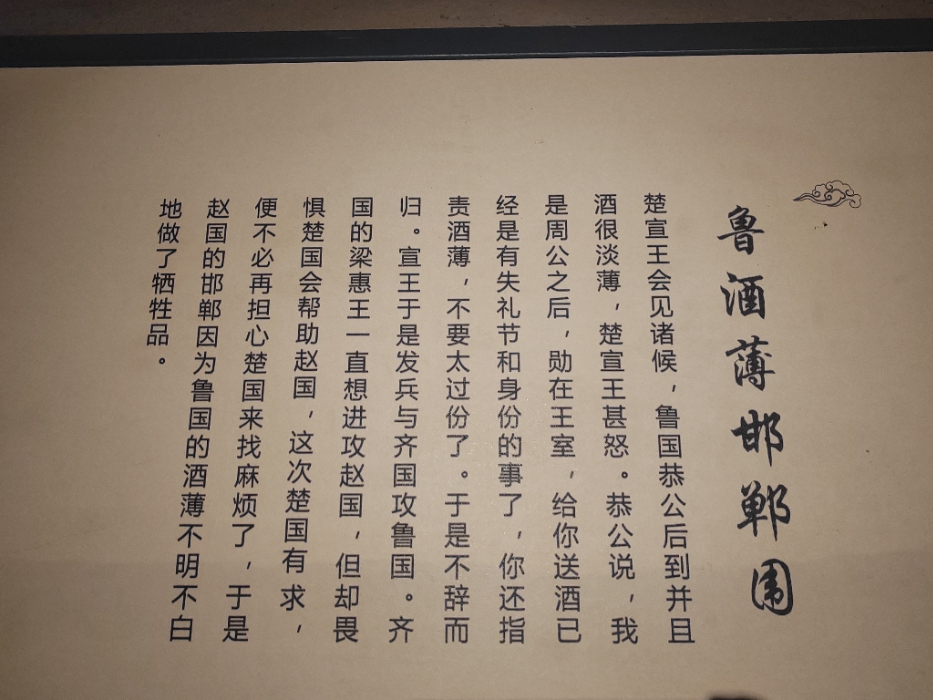 鲁酒薄邯郸围
楚宣王会见诸候，鲁国恭公后到并且
酒很淡薄，楚宣王甚怒。恭公说，我
是周公之后，勋在王室，给你送酒已
经是有失礼节和身份的事了，你还指
责酒薄，不要太过份了。于是不辞而
归。宣王于是发兵与齐国攻鲁国。齐
国的梁惠王一直想进攻赵国，但却畏
惧楚国会帮助赵国，这次楚国有求，
便不必再担心楚国来找麻烦了，于是
赵国的邯郸因为鲁国的酒薄不明不白
地做了牺牲品。